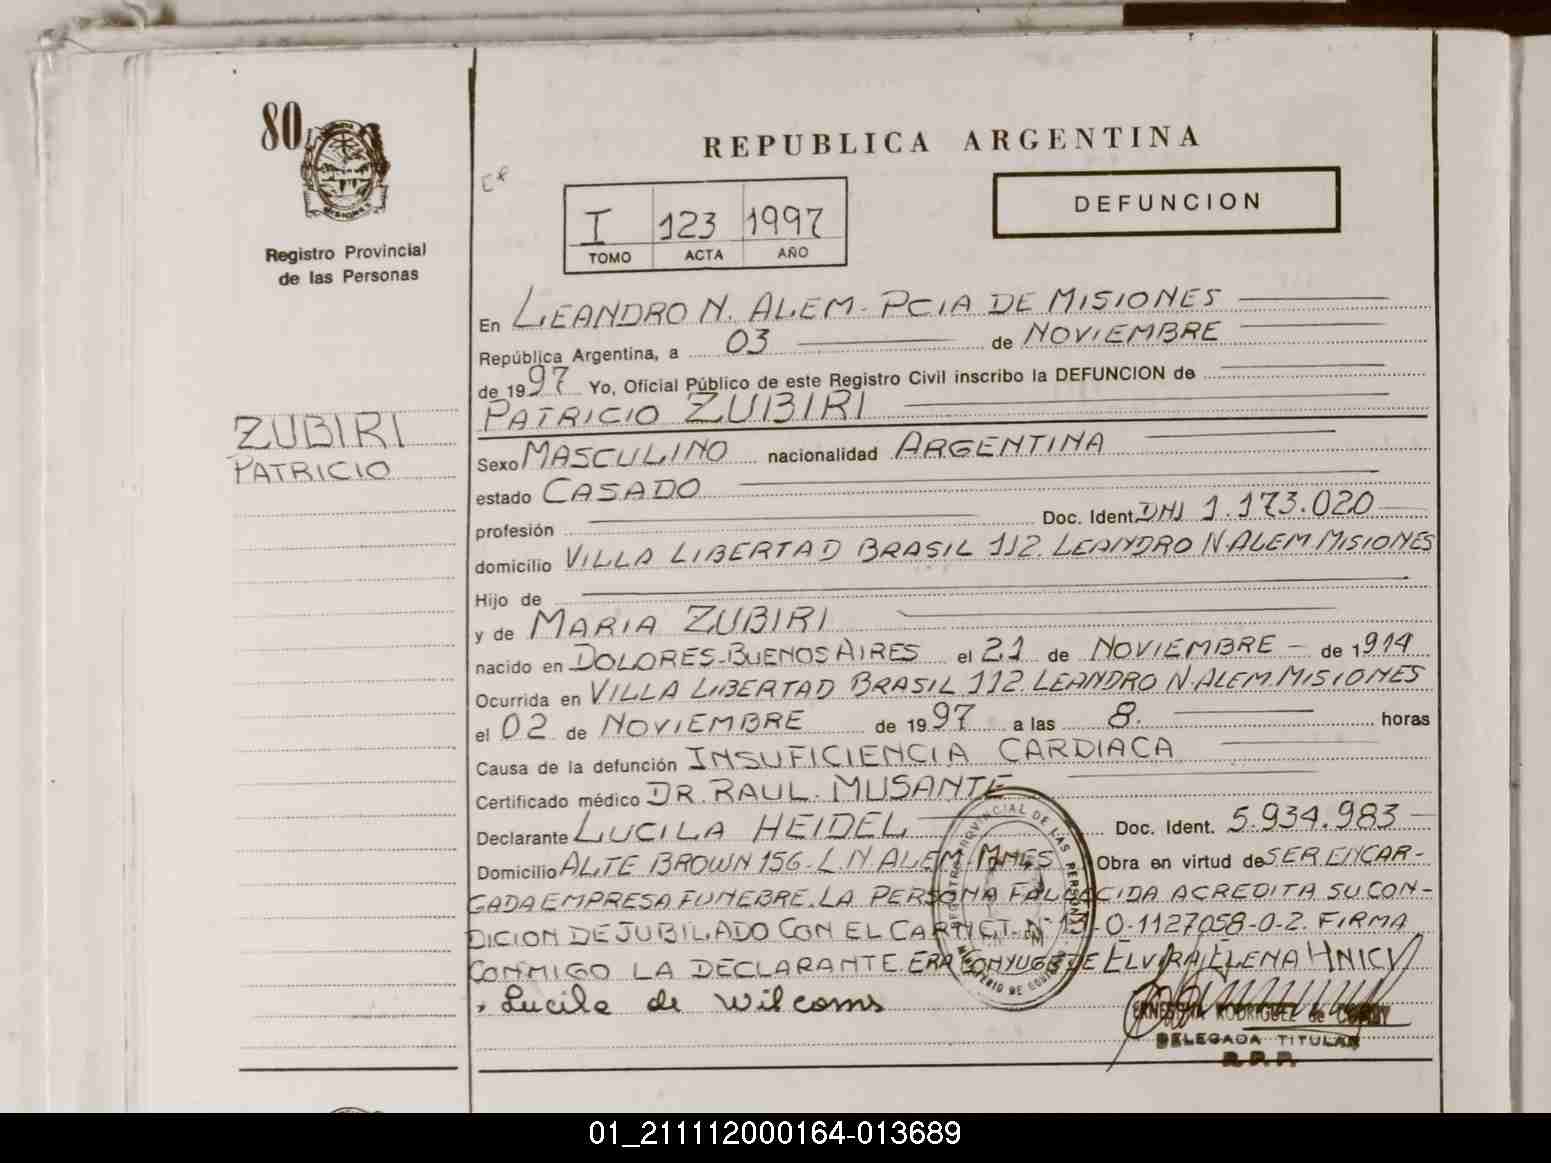 80
Registro Provincial
de las Personas
REPUBLICA ARGENTINA
DEFUNCION
I 123 1997
TOMO ACTA AÑO
En LEANDRO N. ALEM - PCIA DE MISIONES
República Argentina, a 03 de NOVIEMBRE
de 1997 Yo, Oficial Público de este Registro Civil inscribo la DEFUNCION de
PATRICIO ZUBIRI
ZUBIRI
PATRICIO
Sexo MASCULINO nacionalidad ARGENTINA
estado CASADO
profesión Doc. Ident. DNI 1.173.020
domicilio VILLA LIBERTAD BRASIL 112. LEANDRO N. ALEM. MISIONES
Hijo de
y de MARIA ZUBIRI
nacido en DOLORES - BUENOS AIRES el 21 de NOVIEMBRE - de 1914
Ocurrida en VILLA LIBERTAD BRASIL 112. LEANDRO N. ALEM. MISIONES
el 02 de NOVIEMBRE de 1997 a las 8. horas
Causa de la defunción INSUFICIENCIA CARDIACA
Certificado médico DR. RAUL. MUSANTE
Declarante LUCILA HEIDEL Doc. Ident. 5.934.983
Domicilio ALTE BROWN 156 - L.N. ALEM - MNES Obra en virtud de SER ENCAR-
GADA EMPRESA FUNEBRE. LA PERSONA FALLECIDA ACREDITA SU CON-
DICION DE JUBILADO CON EL CARNET. N° 15-0-1127058-0-2. FIRMA
CONMIGO LA DECLARANTE. ERA CONYUGE DE ELVIRA ELENA HNICV
Lucila de Wilcoms
RODRIGUEZ de
DELEGADA TITULAR
R.P.P.
REGISTRO PROVINCIAL DE LAS PERSONAS
MINISTERIO DE GOBIERNO
01_211112000164-013689